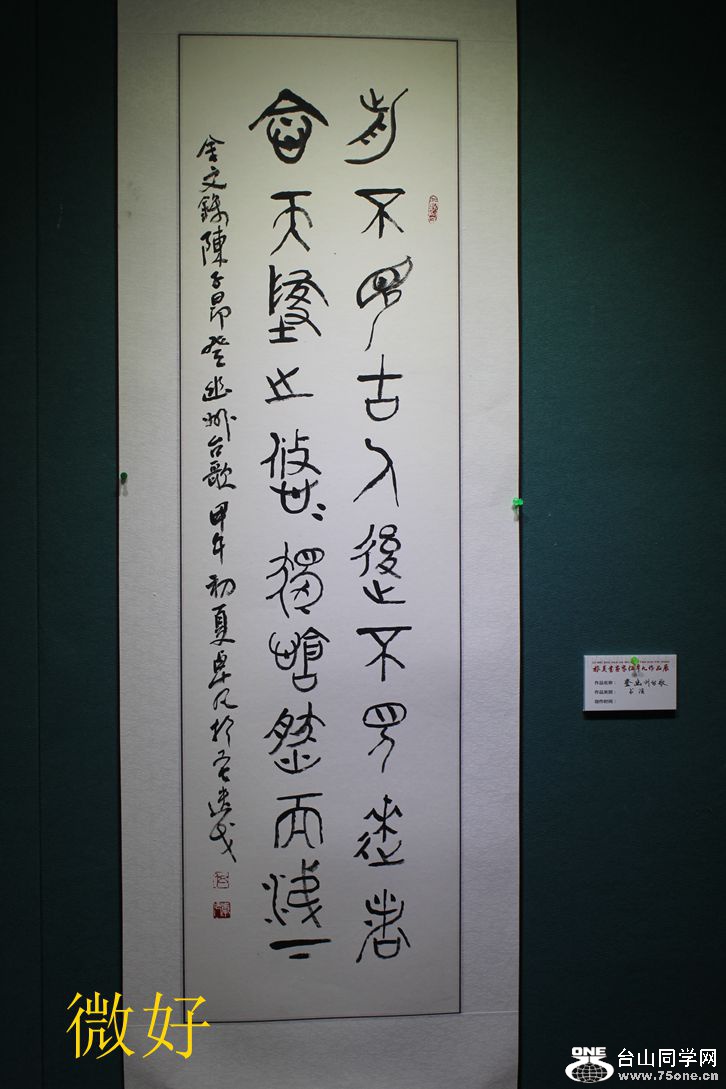 前不見古人後不見來者
念天墬之悠=獨愴然而涕下
金文錄陳子昂登幽州台歌 甲午初夏卓凡於
作品名称：登幽州台歌
作品类别：书法
创作时间：
微好
ONE
台山同学网
www.75one.cn